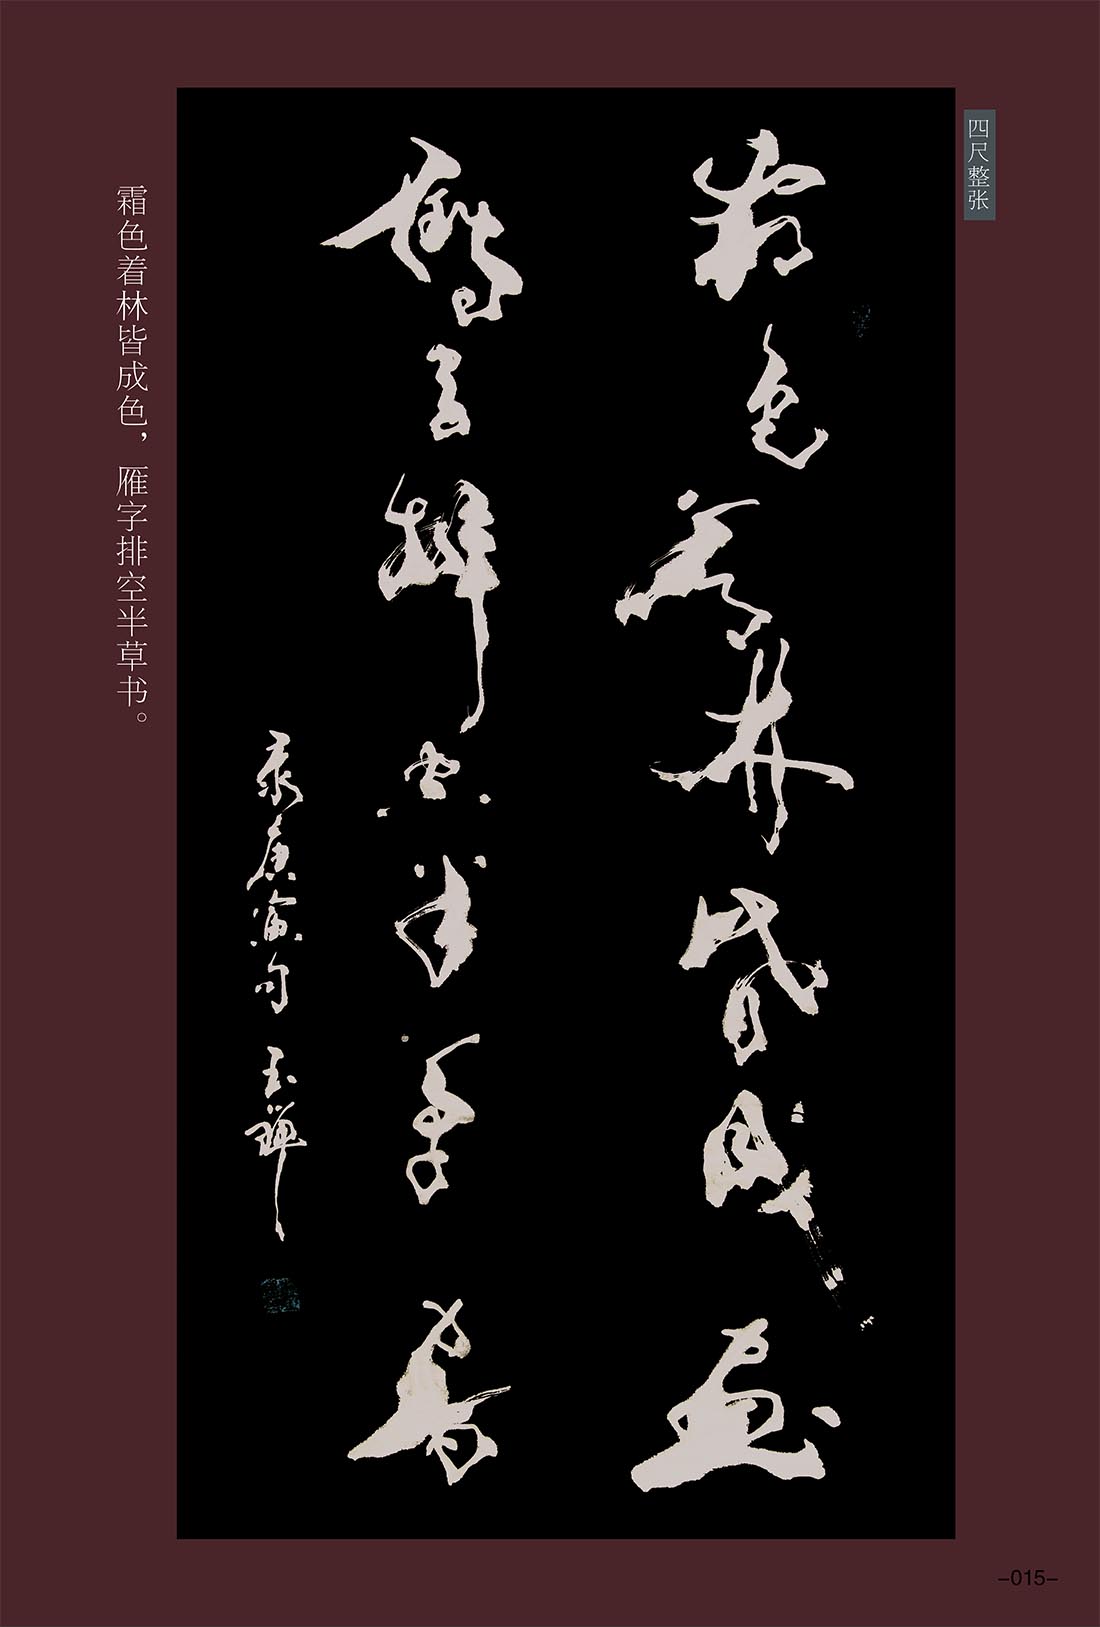 四尺整张
霜色著林皆成畫
雁字排空半草書
录唐寅句 玉
霜色着林皆成色，雁字排空半草书。
-015-